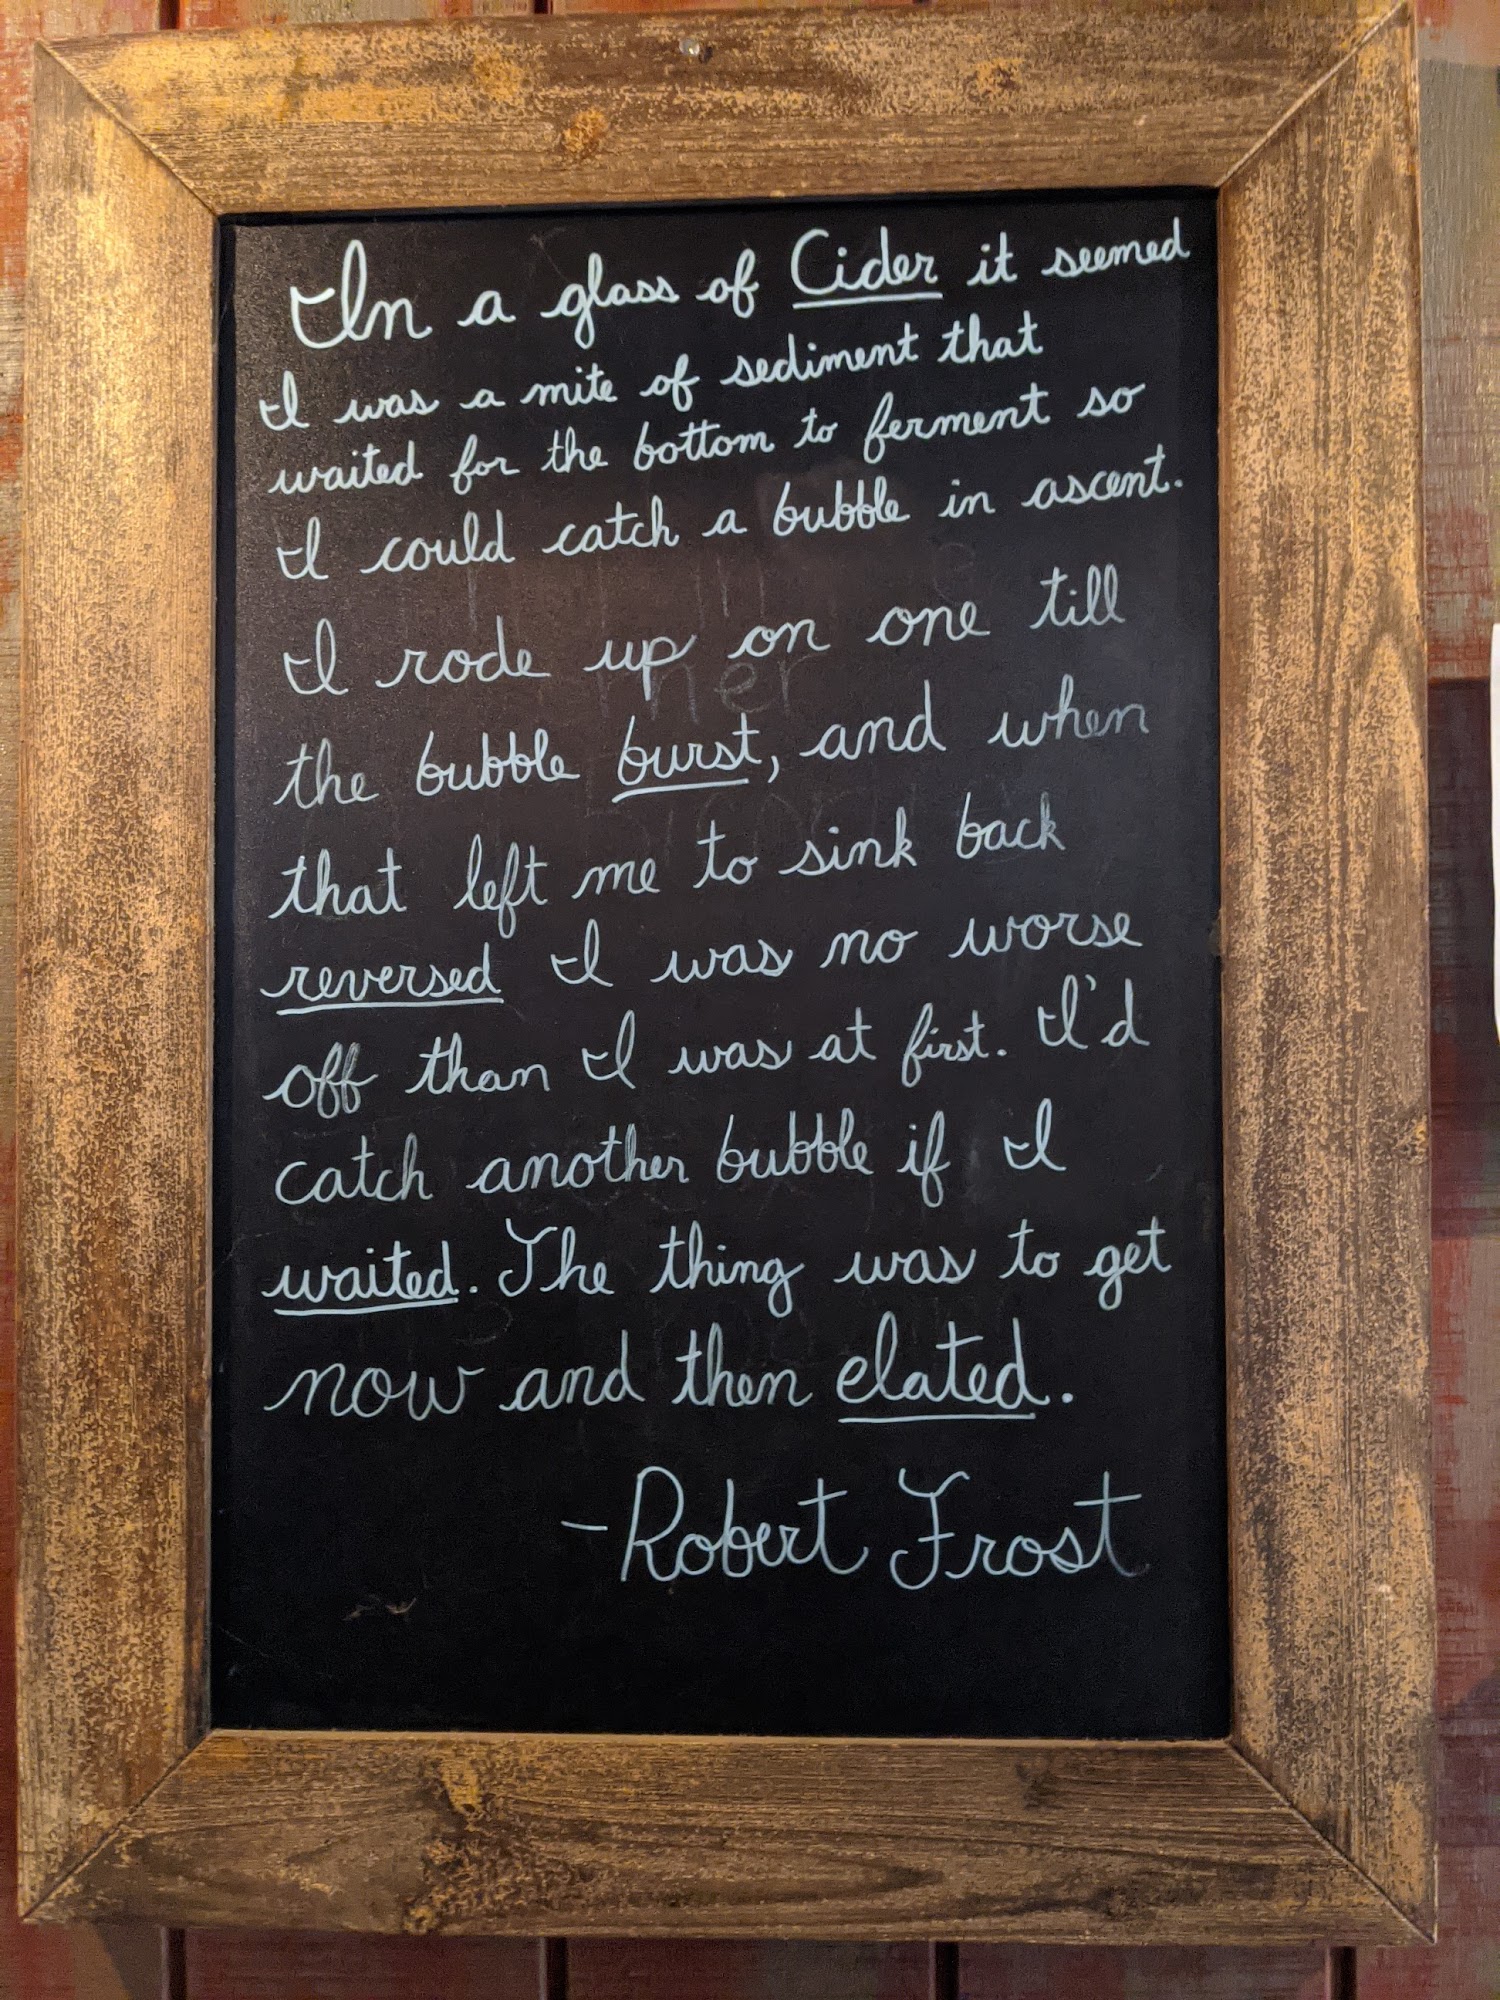 In a glass of Cider it seemed
I was a mite of sediment that
waited for the bottom to ferment so
I could catch a bubble in ascent.
I rode up on one till
the bubble burst, and when
that left me to sink back
reversed I was no worse
off than I was at first. I'd
catch another bubble if I
waited. The thing was to get
now and then elated.
-Robert Frost